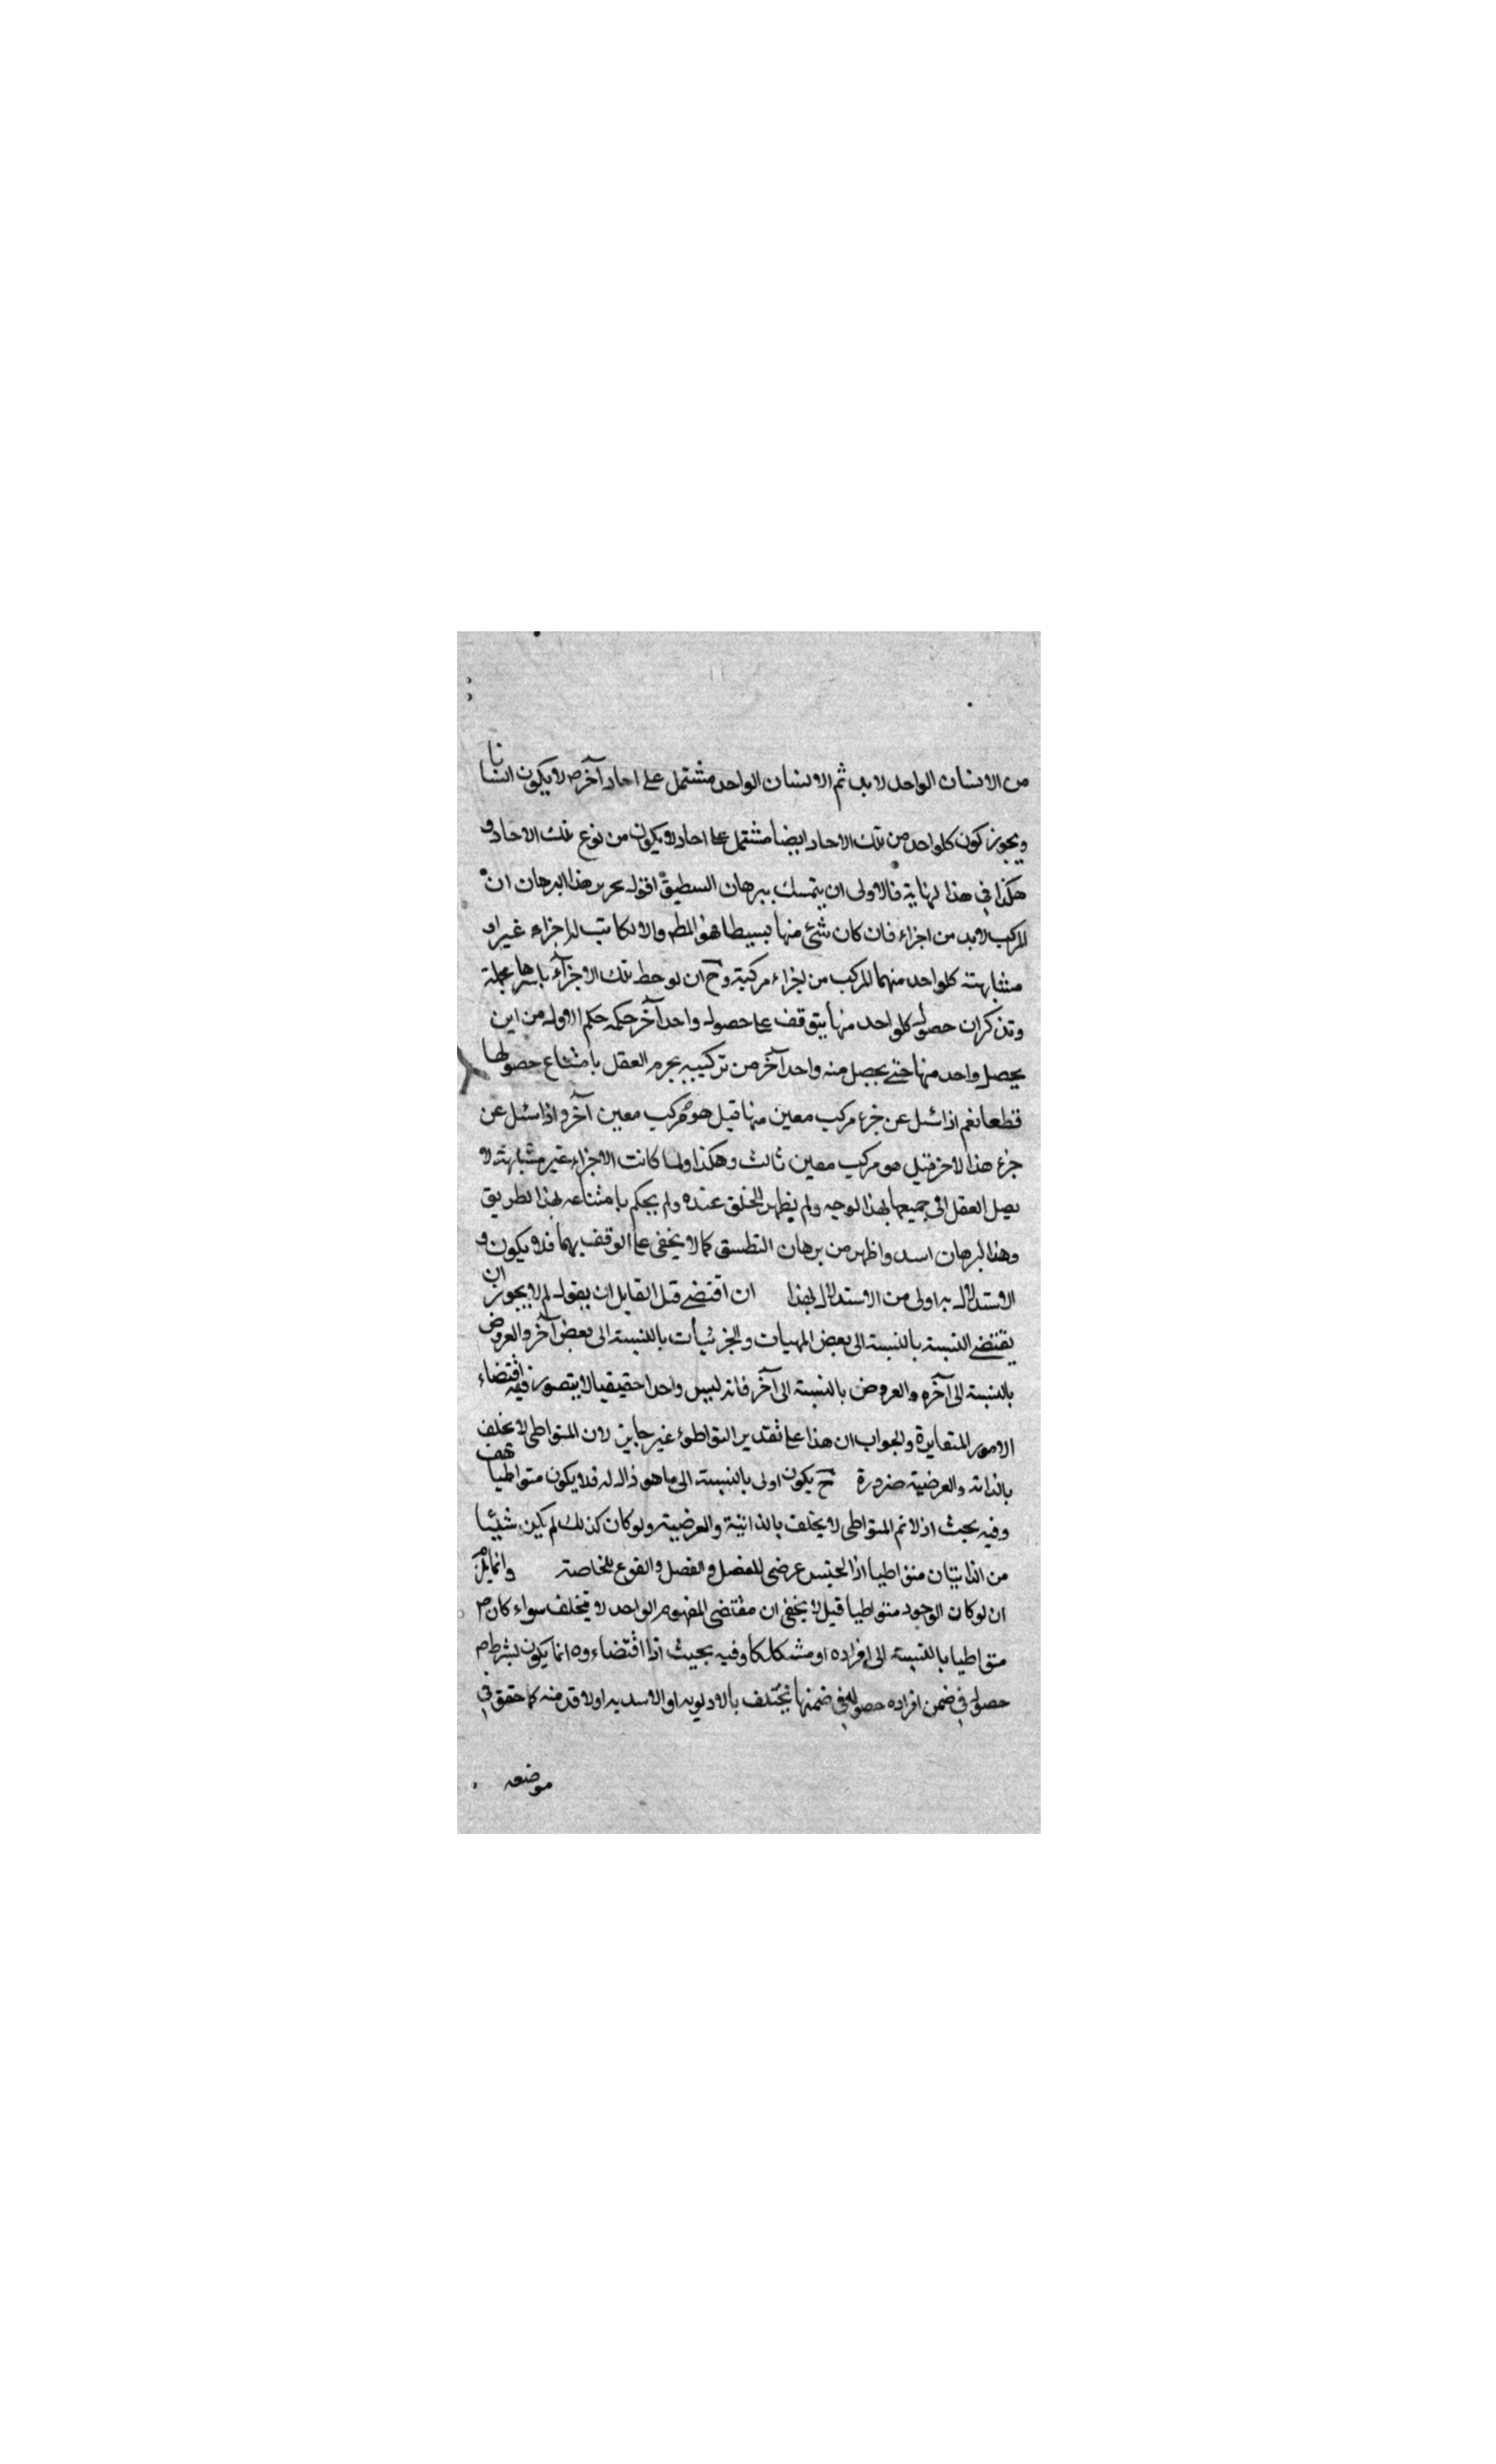 من الانسان الواحد لابد ثم الانسان الواحد مشتمل على احاد آخر لا يكون انسانا
ويجوز كون كلواحد من تلك الاحاد ايضا مشتمل على احاد لا يكون من نوع تلك الاحاد و
هكذا في هذا لنهاية فالاولى ان يتمسك ببرهان التطبيق اقول تحرير هذا البرهان ان
المركب لابد من اجزاء فان كان شئ منها بسيطا فهو المط والا لكانت له اجزاء غير
متشابهته كلواحد منهما المركب من اجزاء مركبة وح ان لوحظ تلك الاجزآء باسرها مجملة
وتذكر ان حصول كلواحد منها يتوقف على حصول واحد آخر حكمه حكم الاول من اين
يحصل واحد منها حتى يحصل منه واحد آخر من تركيبه يجزم العقل بامتناع حصولها
قطعا نعم اذا سئل عن جزء مركب معين منها قيل هو مركب معين آخر واذا سئل عن
جزء هذا الاخر قيل هو مركب معين ثالث وهكذا ولما كانت الاجزاء غير متشابهته لا
يصل العقل الى جميعها بهذا لوجه ولم يظهر الخلق عنده ولم يحكم بامتناعه بهذا لطريق
وهذا لبرهان اسد واظهر من برهان التطبيق كما لا يخفى على الوقف بهما فلا يكون و
الاستدلال به اولى من الاستدلال بهذا ان اقتضى قيل القايل ان يقول لم لا يجوز ان
يقتضى النسبة بالنسبة الى بعض المهيات والجزئيات بالنسبة الى بعض آخر والعروض
بالنسبة الى آخره والعروض بالنسبة الى آخر فانه ليس واحدا حقيقيا لا يتصور فيه اقتضاء
الامور المتغايرة والجواب ان هذا على تقدير التواطوء غير جايز لان المتواطى لا يختلف
بالذاته والعرضية ضرورة ح يكون اولى بالنسبة الى ما هو ذال له فلا يكون متواطيا هف
وفيه بحث اذ لا نم المتواطى لا يختلف بالذاتية والعرضية ولو كان كذلك لم يكن شيئا
من الذاتيات متواطيا اذا الجنس عرضى للفصل والفصل والنوع للخاصة وانما يلزم
ان لو كان الوجود متواطيا قيل لا يخفى ان مقتضى المفهوم الواحد لا يتخلف سواء كان
متواطيا بالنسبة الى افراده او مشككا وفيه بحيث اذا اقتضاءوه انما يكون بشرط
حصول في ضمن افراده حصوله في ضمنها يختلف بالاولويه او الاسديه او الاقدمنه كما حقق في
موضعه